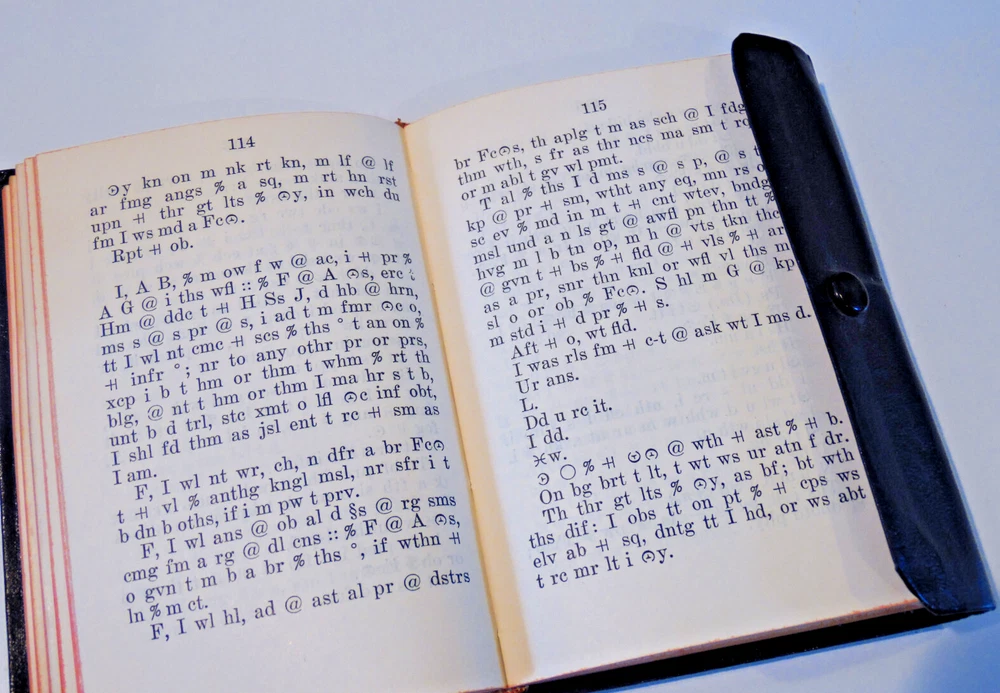 114
⊙y kn on m nk rt kn, m lf @ lf
ar fmg angs % a sq, m rt hn rst
upn ╫ thr gt lts % ⊙y, in wch du
fm I ws md a Fc⊙.
Rpt ╫ ob.
I, A B, % m ow f w @ ac, i ╫ pr %
A G @ i ths wfl :: % F @ A ⊙s, erc t
Hm @ ddc t ╫ H Ss J, d hb @ hrn,
ms s @ s pr @ s, i ad t m fmr ⊙c o,
tt I wl nt cmc ╫ scs % ths ° t an on %
╫ infr °; nr to any othr pr or prs,
xcp i b t hm or thm t whm % rt th
blg, @ nt t hm or thm I ma hr s t b,
unt b d trl, stc xmt o lfl ⊙c inf obt,
I shl fd thm as jsl ent t rc ╫ sm as
I am.
F, I wl nt wr, ch, n dfr a br Fc⊙
t ╫ vl % anthg kngl msl, nr sfr i t
b dn b oths, if i m pw t prv.
F, I wl ans @ ob al d §s @ rg sms
cmg fm a rg @ dl cns :: % F @ A ⊙s,
o gvn t m b a br % ths °, if wthn ╫
ln % m ct.
F, I wl hl, ad @ ast al pr @ dstrs
115
br Fc⊙s, th aplg t m as sch @ I fdg
thm wth, s fr as thr ncs ma sm t rq
or m abl t gv wl pmt.
T al % ths I d ms s @ s p, @ s t
kp @ pr ╫ sm, wtht any eq, mn rs o
sc ev % md in m t ╫ cnt wtev, bndg
msl und a n ls gt @ awfl pn thn tt %
hvg m l b tn op, m h @ vts tkn thc
@ gvn t ╫ bs % ╫ fld @ ╫ vls % ╫ ar
as a pr, snr thn knl or wfl vl ths m
sl o or ob % Fc⊙. S hl m G @ kp
m std i ╫ d pr % ╫ s.
Aft ╫ o, wt fld.
I was rls fm ╫ c-t @ ask wt I ms d.
Ur ans.
L.
Dd u rc it.
I dd.
⚹w.
⊙ ○ % ╫ ⊙⊙ @ wth ╫ ast % ╫ b.
On bg brt t lt, t wt ws ur atn f dr.
Th thr gt lts % ⊙y, as bf; bt wth
ths dif: I obs tt on pt % ╫ cps ws
elv ab ╫ sq, dntg tt I hd, or ws abt
t rc mr lt i ⊙y.